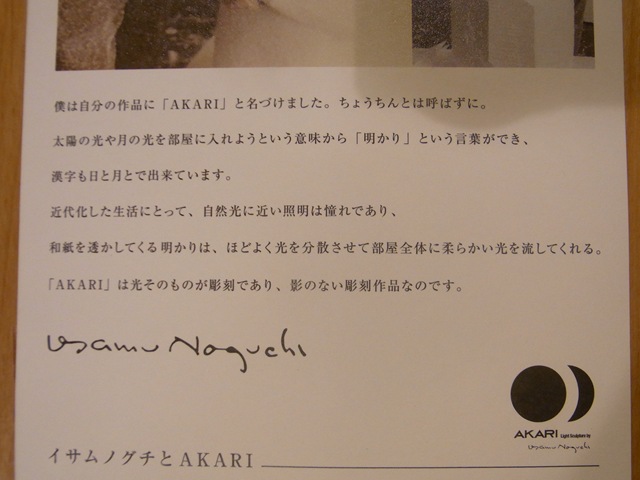 僕は自分の作品に「AKARI」と名づけました。ちょうちんとは呼ばずに。
太陽の光や月の光を部屋に入れようという意味から「明かり」という言葉ができ、
漢字も日と月とで出来ています。
近代化した生活にとって、自然光に近い照明は憧れであり、
和紙を透かしてくる明かりは、ほどよく光を分散させて部屋全体に柔らかい光を流してくれる。
「AKARI」は光そのものが彫刻であり、影のない彫刻作品なのです。
Isamu Noguchi
AKARI Light Sculpture by
Isamu Noguchi
イサムノグチとAKARI